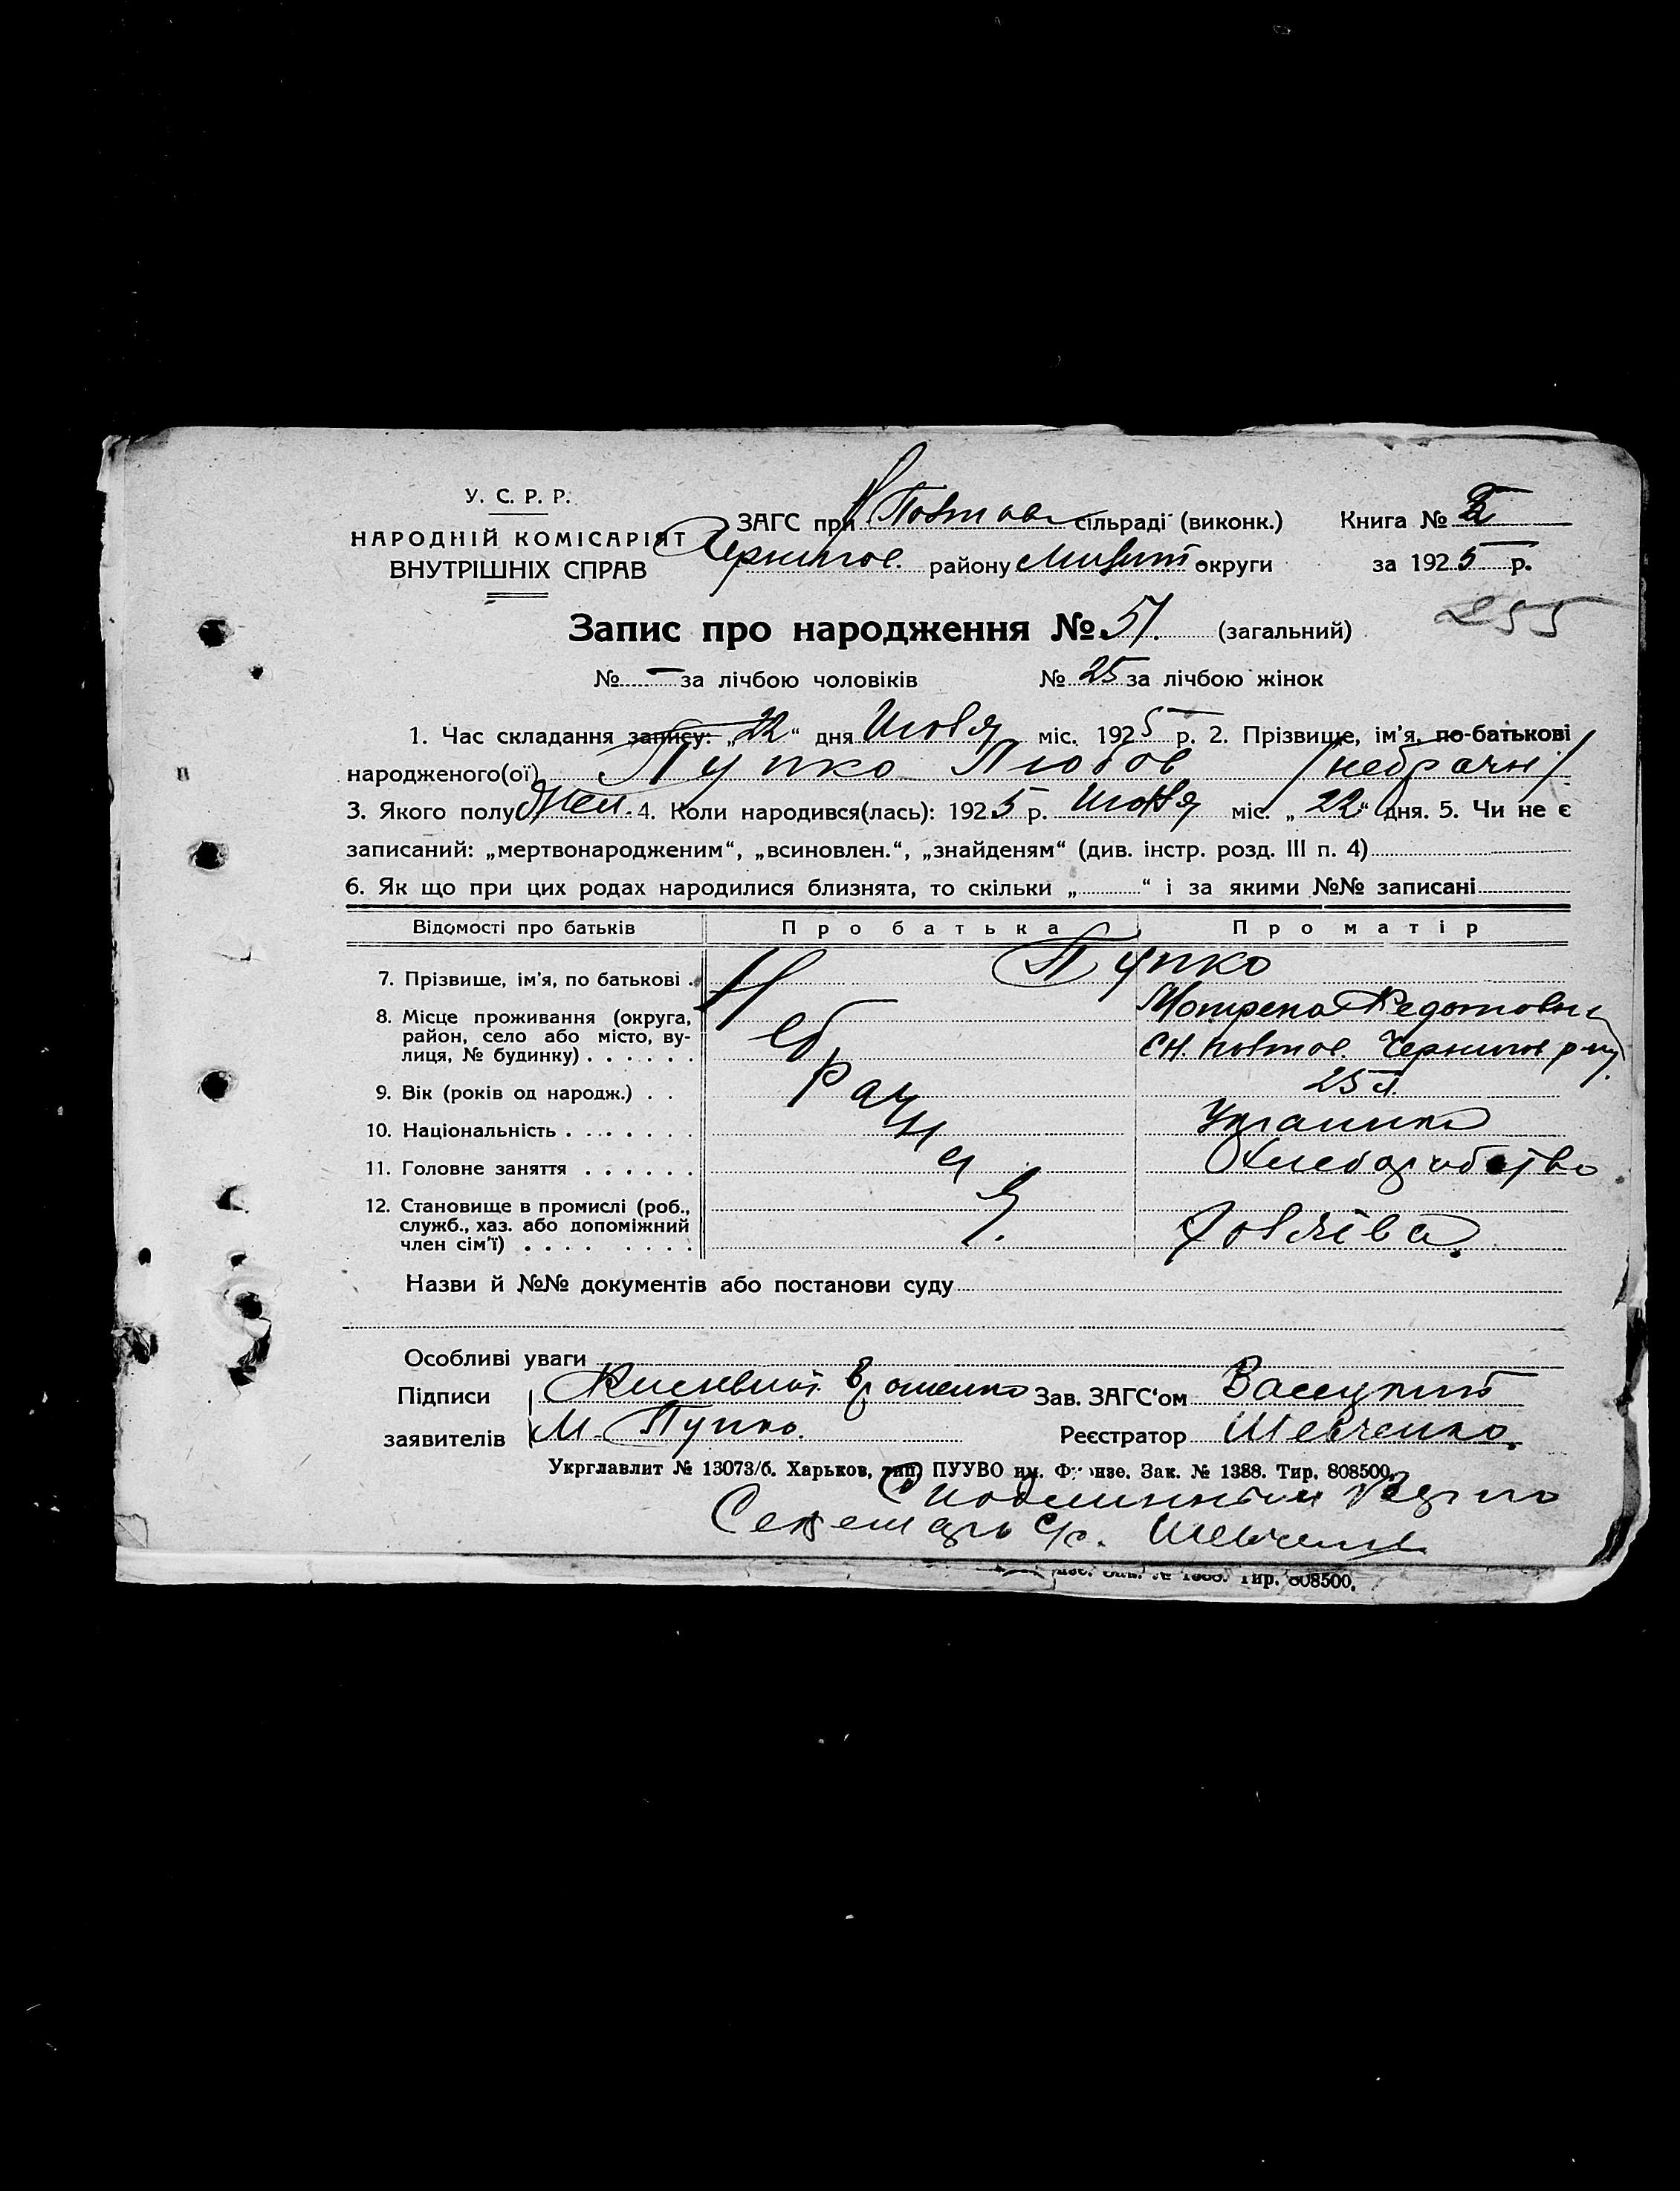 У. С. Р. Р.
НАРОДНІЙ КОМІСАРІЯТ
ВНУТРІШНІХ СПРАВ
ЗАГС при Н Повтов сільраді (виконк.) Книга №
Чернигов. району округи за 1925 р.
255
Запис про народження № 51. (загальний)
№ — за лічбою чоловіків № 25 за лічбою жінок
1. Час складання запису: „22“ дня Июля міс. 1925 р. 2. Прізвище, ім’я, по-батькові
народженого(ої) Пупко Любов /небрачн/
3. Якого полу Жен. 4. Коли народився(лась): 1925 р. міс. „22“ дня. 5. Чи не є
записаний: „мертвонародженим“, „всиновлен.“, „знайденям“ (див. інстр. розд. III п. 4)
6. Як що при цих родах народилися близнята, то скільки „ “ і за якими №№ записані
Відомості про батьків Про батька Про матір
7. Прізвище, ім’я, по батькові Пупко
Мотрена Федотовна
8. Місце проживання (округа,
район, село або місто, ву-
лиця, № будинку) Н. Повтов. Чернигов р-ну
9. Вік (років од народж.) 25 л.
10. Національність Украинка
11. Головне заняття Хлеборобство
12. Становище в промислі (роб.,
служб., хаз. або допоміжний
член сім’ї)
Небрачная
Назви й №№ документів або постанови суду
Особливі уваги
Підписи Зав. ЗАГС‘ом
заявителів М. Пупко. Реєстратор Шевченко.
Укрглавлит № 13073/б. Харьков, тип. ПУУВО им. Фрунзе. Зак. № 1388. Тир. 808500.
С подлинным верно
Секретарь с/с. Шевченко
Зак. № 1388. Тир. 808500.